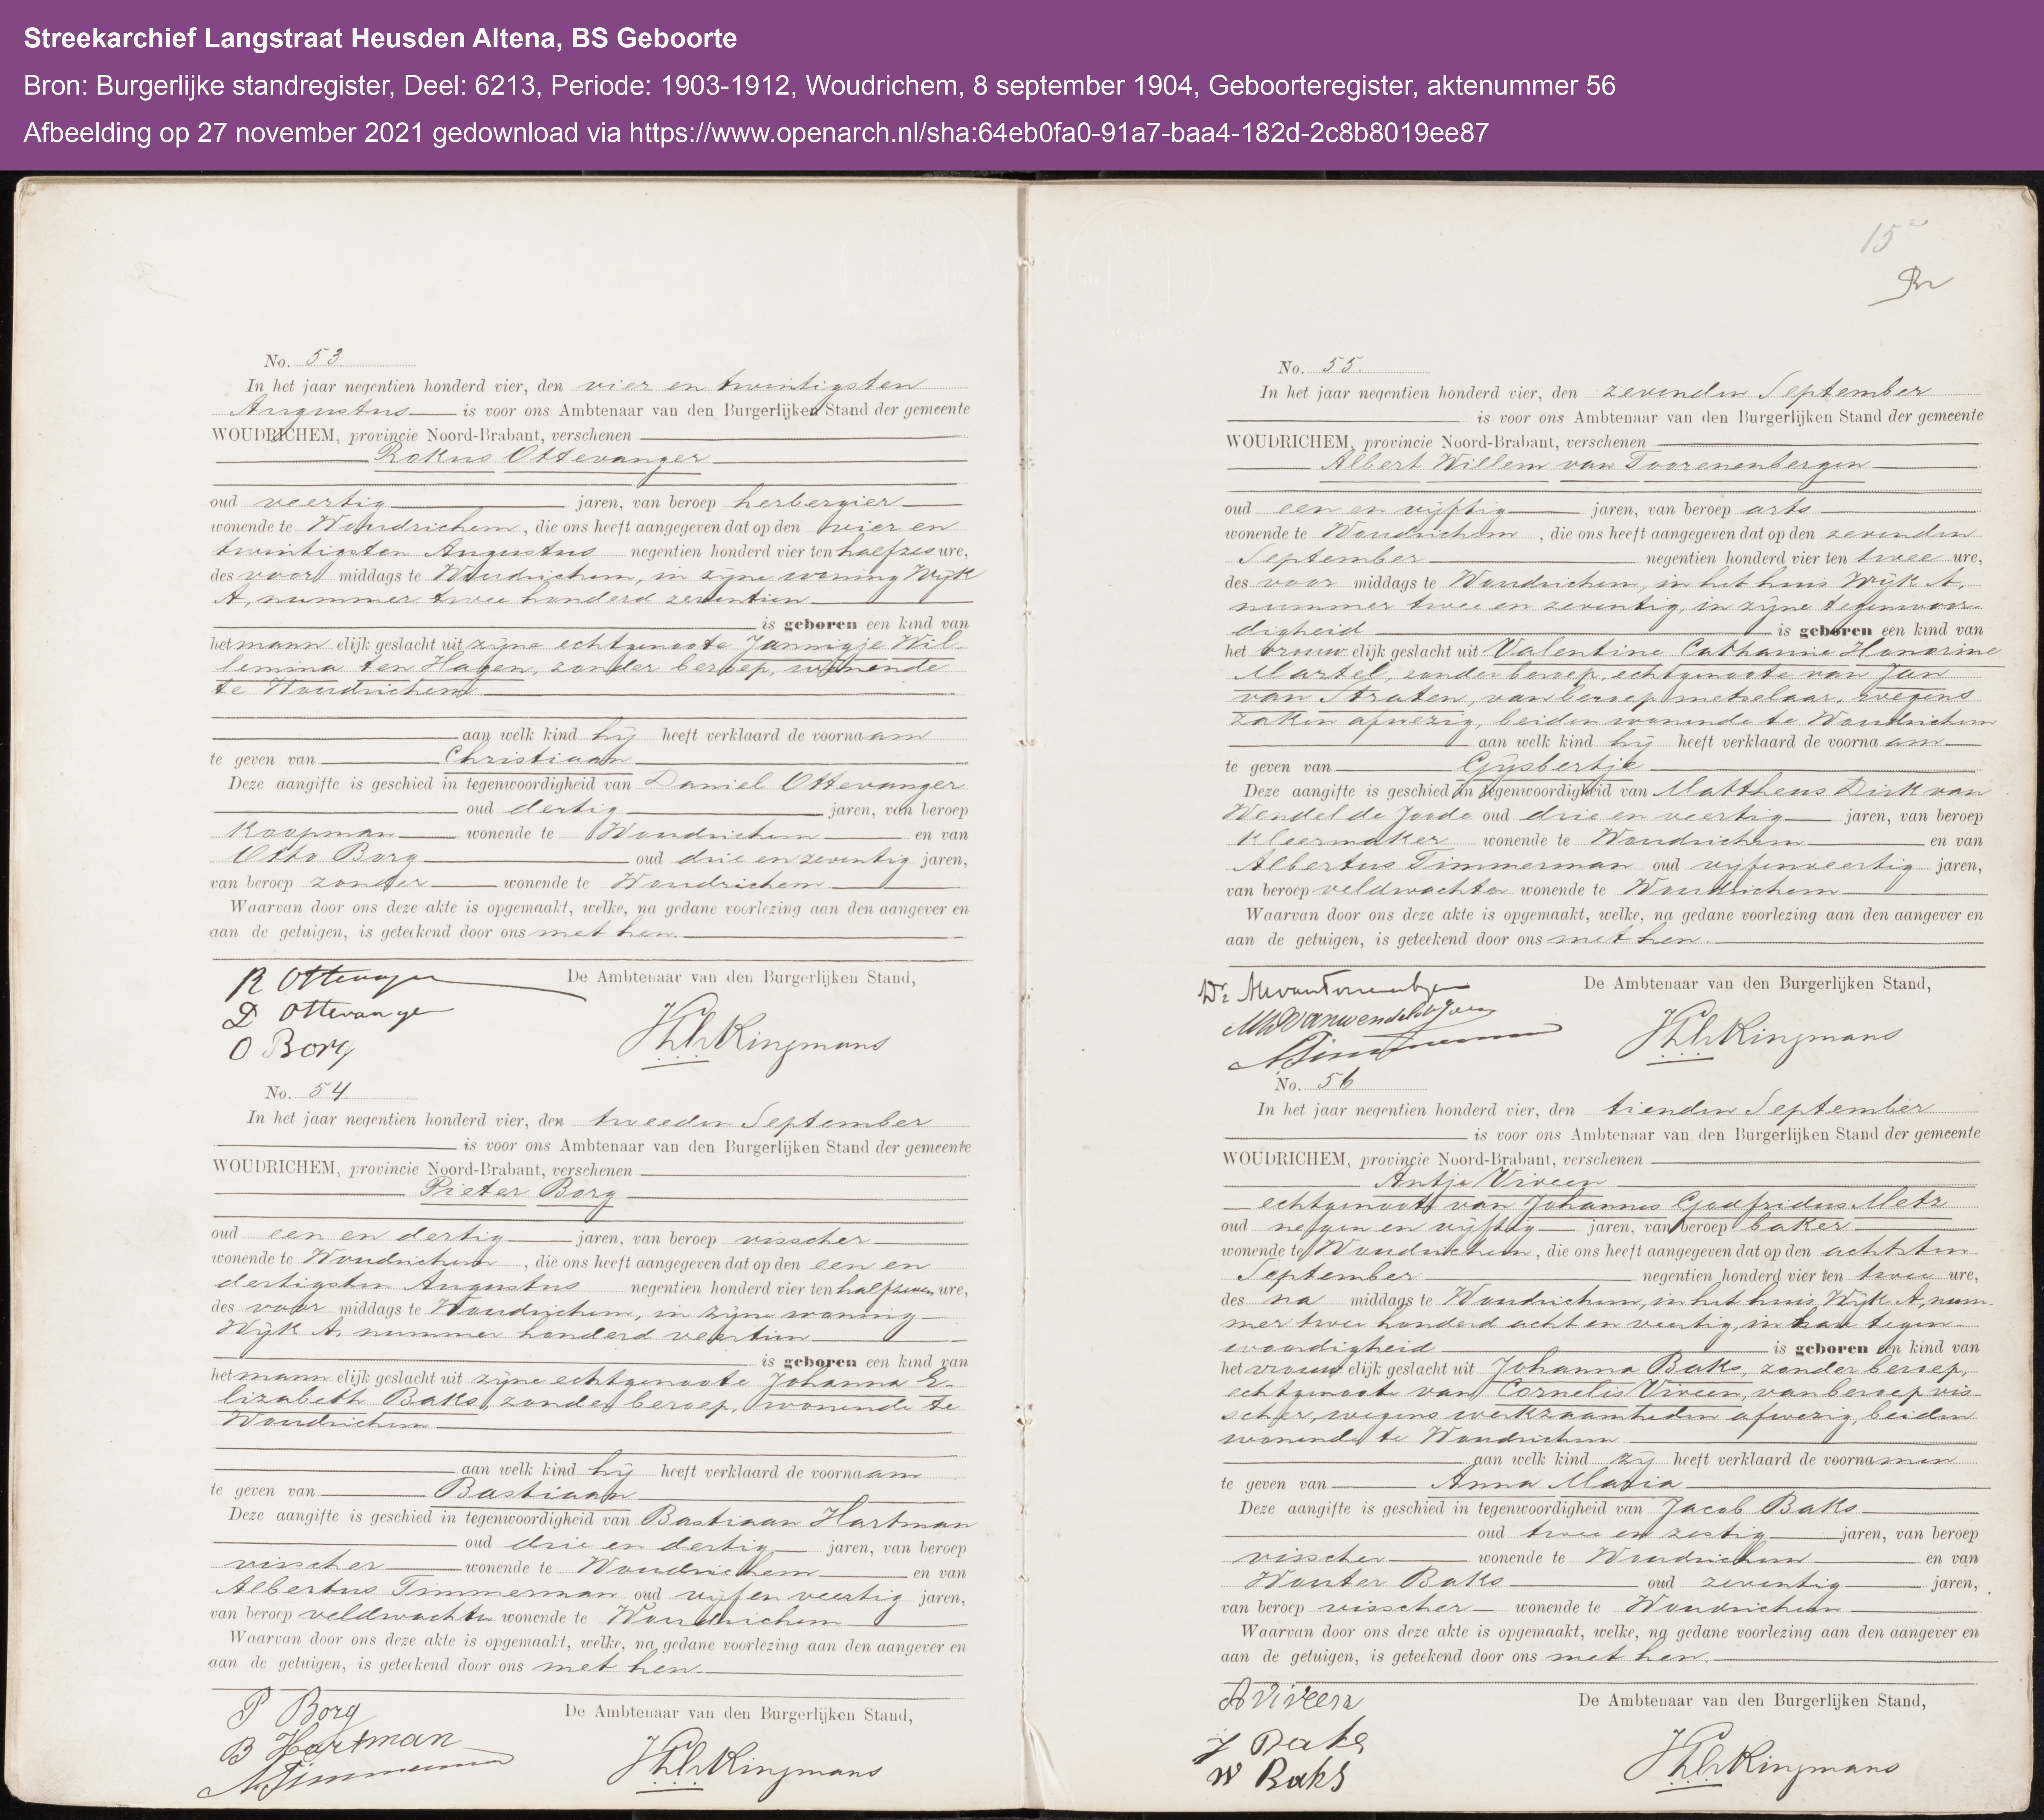 Streekarchief Langstraat Heusden Altena, BS Geboorte
Bron: Burgerlijke standregister, Deel: 6213, Periode: 1903-1912, Woudrichem, 8 september 1904, Geboorteregister, aktenummer 56
Afbeelding op 27 november 2021 gedownload via https://www.openarch.nl/sha:64eb0fa0-91a7-baa4-182d-2c8b8019ee87
No. 53
In het jaar negentien honderd vier, den vier en twintigsten
Augustus is voor ons Ambtenaar van den Burgerlijken Stand der gemeente
WOUDRICHEM, provincie Noord-Brabant, verschenen
Rokus Ottevanger
oud veertig jaren, van beroep herbergier
wonende te Woudrichem, die ons heeft aangegeven dat op den vier en
twintigsten Augustus negentien honderd vier ten halfzes ure,
des voor middags te Woudrichem, in zijne woning Wijk
A, nummer twee honderd zeventien
is geboren een kind van
het mannelijk geslacht uit zijne echtgenoote Jannigje Wil-
lemina ten Hagen, zonder beroep, wonende
te Woudrichem
aan welk kind hij heeft verklaard de voornaam
te geven van Christiaan
Deze aangifte is geschied in tegenwoordigheid van Daniel Ottevanger
oud dertig jaren, van beroep
Koopman wonende te Woudrichem en van
Otto Borg oud drie en zeventig jaren,
van beroep zonder wonende te Woudrichem
Waarvan door ons deze akte is opgemaakt, welke, na gedane voorlezing aan den aangever en
aan de getuigen, is geteekend door ons met hen.
De Ambtenaar van den Burgerlijken Stand,
R Ottevanger
D Ottevanger
O Borg
Kingmans
No. 54
In het jaar negentien honderd vier, den tweeden September
is voor ons Ambtenaar van den Burgerlijken Stand der gemeente
WOUDRICHEM, provincie Noord-Brabant, verschenen
Pieter Borg
oud een en dertig jaren, van beroep visscher
wonende te Woudrichem, die ons heeft aangegeven dat op den een en
dertigsten Augustus negentien honderd vier ten halfzeven ure,
des voor middags te Woudrichem, in zijne woning
Wijk A, nummer honderd veertien
is geboren een kind van
het mannelijk geslacht uit zijne echtgenoote Johanna E-
lizabeth Baks, zonder beroep, wonende te
Woudrichem
aan welk kind hij heeft verklaard de voornaam
te geven van Bastiaan
Deze aangifte is geschied in tegenwoordigheid van Bastiaan Hartman
oud drie en dertig jaren, van beroep
visscher wonende te Woudrichem en van
Albertus Timmerman oud vijf en veertig jaren,
van beroep veldwachter wonende te Woudrichem
Waarvan door ons deze akte is opgemaakt, welke, na gedane voorlezing aan den aangever en
aan de getuigen, is geteekend door ons met hen.
De Ambtenaar van den Burgerlijken Stand,
P Borg
B Hartman
A Timmerman
Kingmans
15
No. 55.
In het jaar negentien honderd vier, den zevenden September
is voor ons Ambtenaar van den Burgerlijken Stand der gemeente
WOUDRICHEM, provincie Noord-Brabant, verschenen
Albert Willem van Toorenenbergen
oud een en vijftig jaren, van beroep arts
wonende te Woudrichem, die ons heeft aangegeven dat op den zevenden
September negentien honderd vier ten twee ure,
des voor middags te Woudrichem, in het huis Wijk A,
nummer twee en zeventig, in zijne tegenwoor-
digheid is geboren een kind van
het vrouwelijk geslacht uit Valentine Catharine Honorine
Martel, zonder beroep, echtgenoote van Jan
van Straten, van beroep metselaar, wegens
zaken afwezig, beiden wonende te Woudrichem
aan welk kind hij heeft verklaard de voornaam
te geven van Gijsbertje
Deze aangifte is geschied in tegenwoordigheid van Mattheus Dirk van
Wendel de Joode oud drie en veertig jaren, van beroep
Kleermaker wonende te Woudrichem en van
Albertus Timmerman oud vijf en veertig jaren,
van beroep veldwachter wonende te Woudrichem
Waarvan door ons deze akte is opgemaakt, welke, na gedane voorlezing aan den aangever en
aan de getuigen, is geteekend door ons met hen.
De Ambtenaar van den Burgerlijken Stand,
Kingmans
No. 56
In het jaar negentien honderd vier, den tienden September
is voor ons Ambtenaar van den Burgerlijken Stand der gemeente
WOUDRICHEM, provincie Noord-Brabant, verschenen
Antje Viveen
echtgenoote van Johannes Godfridus Metz
oud negen en vijftig jaren, van beroep baker
wonende te Woudrichem, die ons heeft aangegeven dat op den achtsten
September negentien honderd vier ten twee ure,
des na middags te Woudrichem, in het huis Wijk A, num-
mer twee honderd acht en veertig, in haar tegen-
woordigheid is geboren een kind van
het vrouwelijk geslacht uit Johanna Baks, zonder beroep,
echtgenoote van Cornelis Viveen, van beroep vis-
scher, wegens werkzaamheden afwezig, beiden
wonende te Woudrichem
aan welk kind zij heeft verklaard de voornamen
te geven van Anna Maria
Deze aangifte is geschied in tegenwoordigheid van Jacob Baks
oud twee en zestig jaren, van beroep
visscher wonende te Woudrichem en van
Wouter Baks oud zeventig jaren,
van beroep visscher wonende te Woudrichem
Waarvan door ons deze akte is opgemaakt, welke, na gedane voorlezing aan den aangever en
aan de getuigen, is geteekend door ons met hen.
De Ambtenaar van den Burgerlijken Stand,
A Viveen
J Baks
W Baks
Kingmans